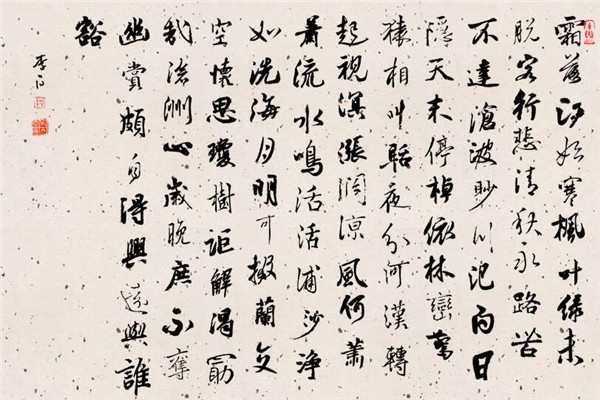 霜落江始寒楓叶綠未
脫客行悲清秋永路苦
不達滄波眇川汜白日
隱天末停棹依林巒驚
猿相叫聒夜分河漢轉
起視溟漲闊凉風何蕭
蕭流水鳴活活浦沙淨
如洗海月明可掇蘭交
空懷思瓊樹詎解渴勖
哉滄洲心歲晚庶不奪
幽賞頗自得興遠與誰
豁